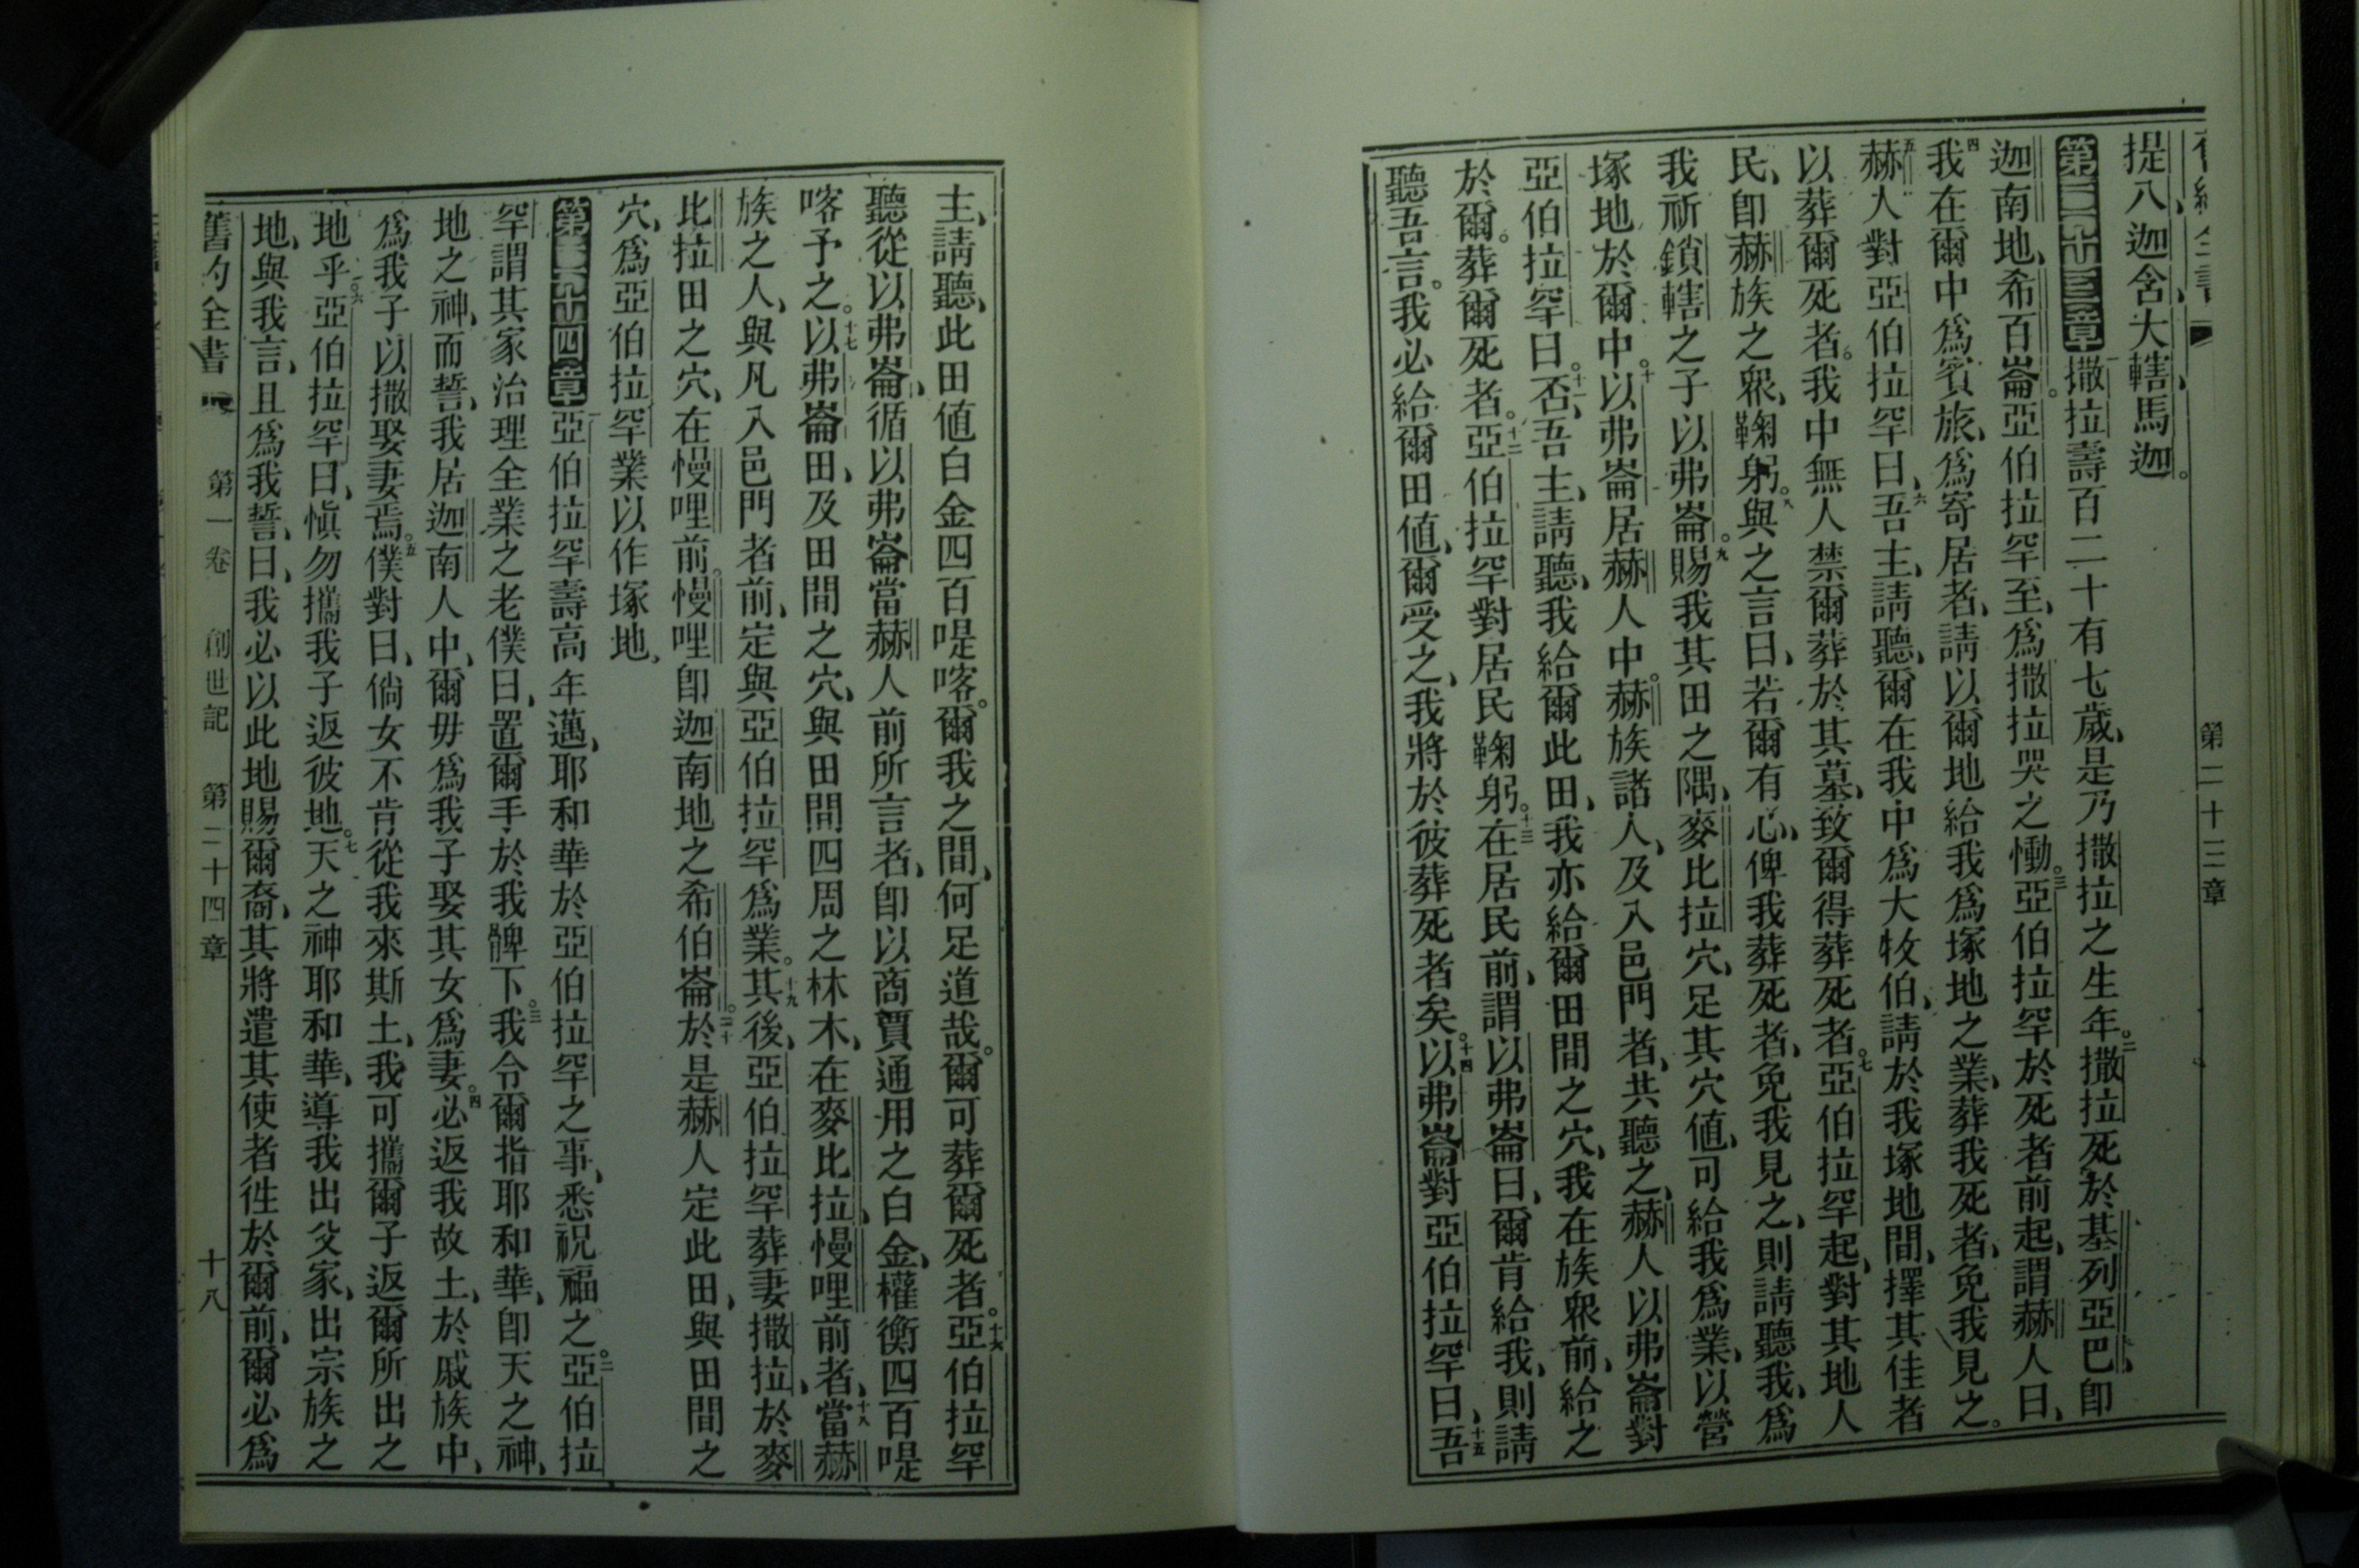 第二十三章
提八、迦含、大轄、馬迦。
第二十三章 一撒拉壽百二十有七歲、是乃撒拉之生年。二撒拉死於基列亞巴、卽
迦南地、希百崙。亞伯拉罕至、爲撒拉哭之慟。三亞伯拉罕於死者前起、謂赫人曰、
四我在爾中爲賓旅、爲寄居者、請以爾地給我爲塚地之業、葬我死者、免我見之。
五赫人對亞伯拉罕曰、六吾主、請聽、爾在我中爲大牧伯、請於我塚地間、擇其佳者
以葬爾死者。我中無人禁爾葬於其墓、致爾得葬死者。七亞伯拉罕起、對其地人
民、卽赫族之眾、鞠躬。八與之言曰、若爾有心、俾我葬死者、免我見之、則請聽我、爲
我祈鎖轄之子以弗崙。九賜我其田之隅、麥比拉穴、足其穴值、可給我爲業、以營
塚地於爾中。十以弗崙居赫人中。赫族諸人、及入邑門者、共聽之、赫人以弗崙對
亞伯拉罕曰。十一否、吾主、請聽、我給爾此田、我亦給爾田間之穴、我在族眾前、給之
於爾。葬爾死者。十二亞伯拉罕對居民鞠躬。十三在居民前、謂以弗崙曰、爾肯給我、則請
聽吾言。我必給爾田值、爾受之、我將於彼葬死者矣。十四以弗崙對亞伯拉罕曰、十五吾
主、請聽、此田值白金四百㖷喀。爾我之間、何足道哉。爾可葬爾死者。十六亞伯拉罕
聽從以弗崙、循以弗崙當赫人前所言者、卽以商賈通用之白金、權衡四百㖷
喀予之。十七以弗崙田、及田間之穴、與田間四周之林木、在麥比拉、慢哩前者、十八當赫
族之人、與凡入邑門者前、定與亞伯拉罕爲業。十九其後、亞伯拉罕葬妻撒拉、於麥
比拉田之穴、在慢哩前。慢哩卽迦南地之希伯崙。二十於是赫人定此田、與田間之
穴、爲亞伯拉罕業以作塚地、
第二十四章 一亞伯拉罕壽高年邁、耶和華於亞伯拉罕之事、悉祝福之。二亞伯拉
罕謂其家治理全業之老僕曰、置爾手於我髀下。三我令爾指耶和華、卽天之神、
地之神、而誓、我居迦南人中、爾毋爲我子娶其女爲妻。四必返我故土、於戚族中、
爲我子以撒娶妻焉。五僕對曰、倘女不肯從我來斯土、我可攜爾子返爾所出之
地乎。六亞伯拉罕曰、愼勿攜我子返彼地。七天之神耶和華、導我出父家、出宗族之
地、與我言、且爲我誓、曰、我必以此地賜爾裔、其將遣其使者徃於爾前、爾必爲
舊約全書 第一卷 創世記 第二十四章 十八